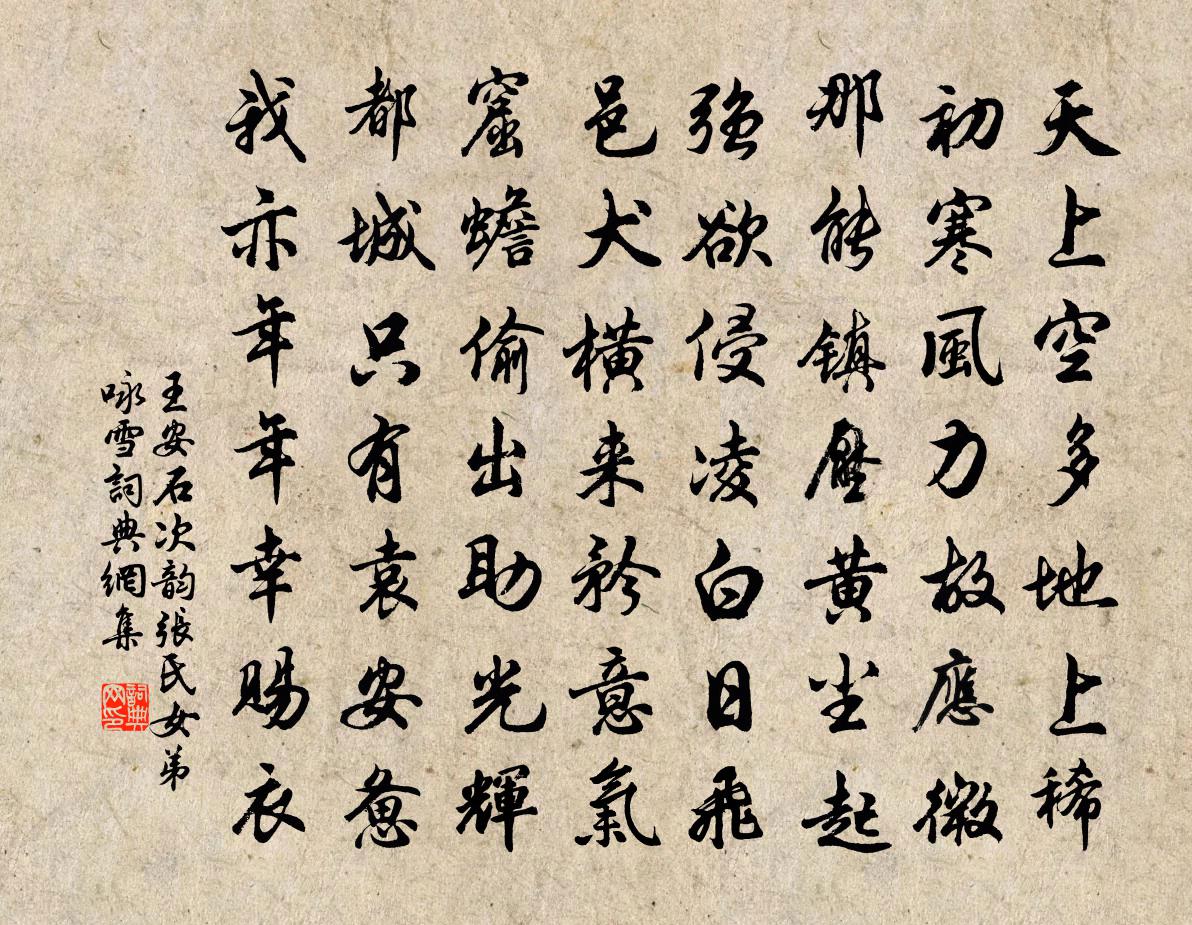 天上空多地上稀
初寒風力故應微
那能鎮壓黄尘起
強欲侵凌白日飛
邑犬横来矜意氣
窟蟾偷出助光輝
都城只有袁安惫
我亦年年幸賜衣
王安石次韵張氏女弟
咏雪詞典網集
詞典
网印